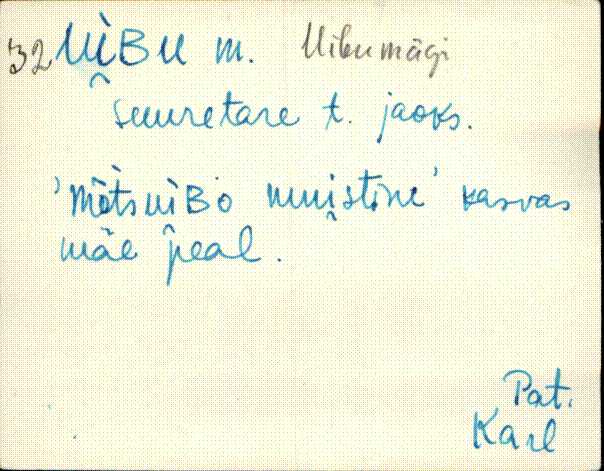 32 UìBU m. Uibumägi
suuretare t. jaoks.
'mètsùiBò muistòne' kasvas
mäe peal.
Pat.
Karl